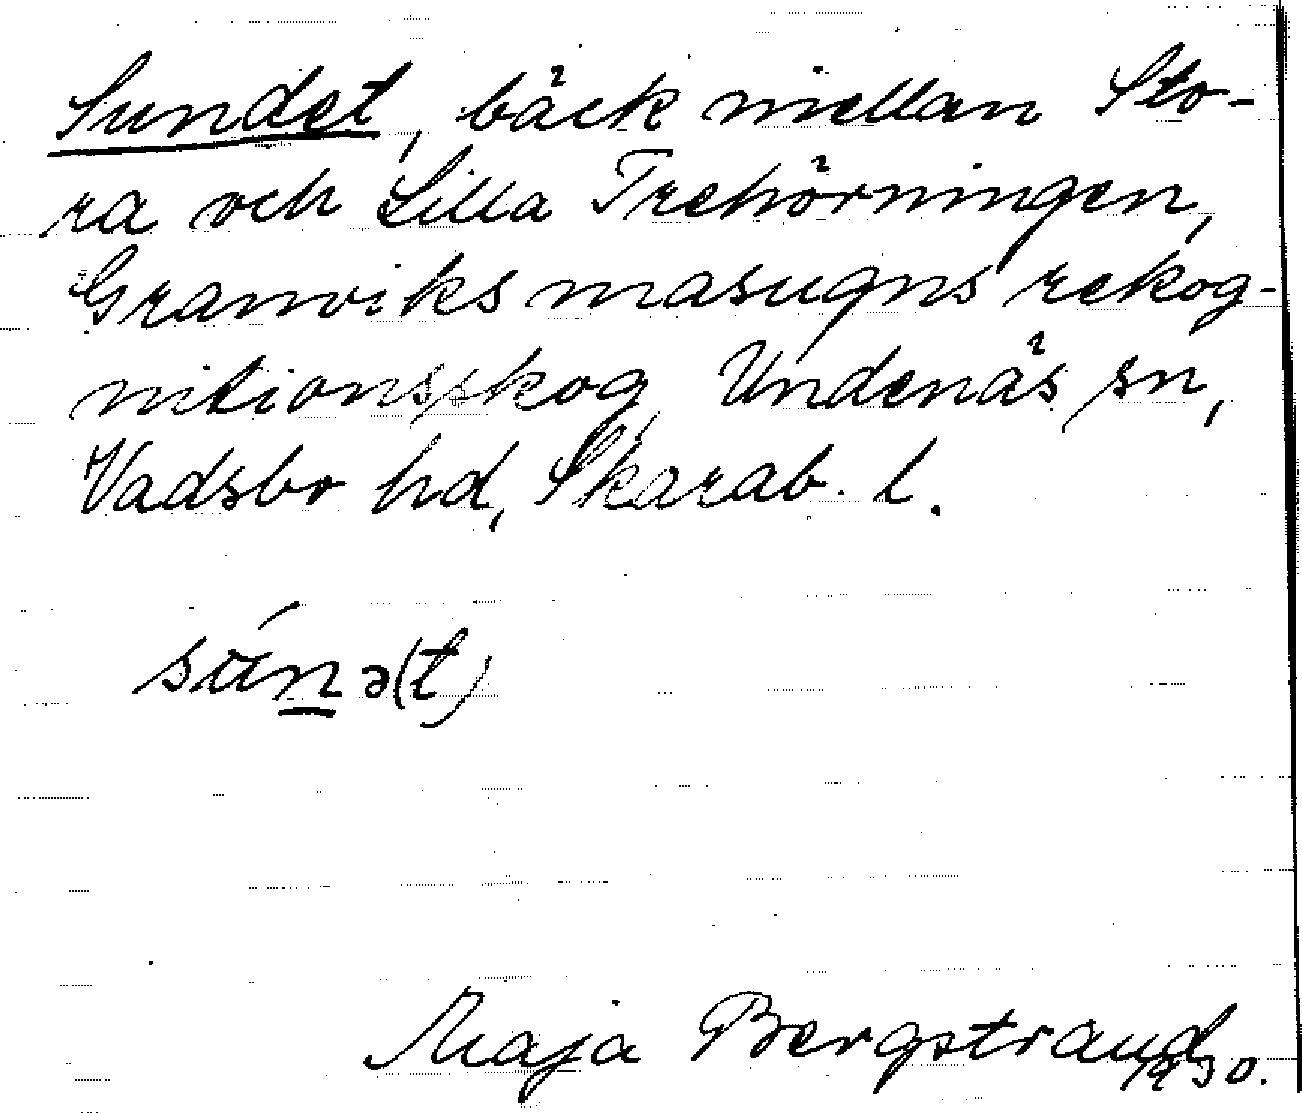 Sundet, bäck mellan Sto-
ra och Lilla Trehörningen,
Granviks masugns rekog-
nitionsskog, Undenäs sn,
Vadsbo hd, Skarab. l.
sún̲ə(t)
Maja Bergstrand
1930.